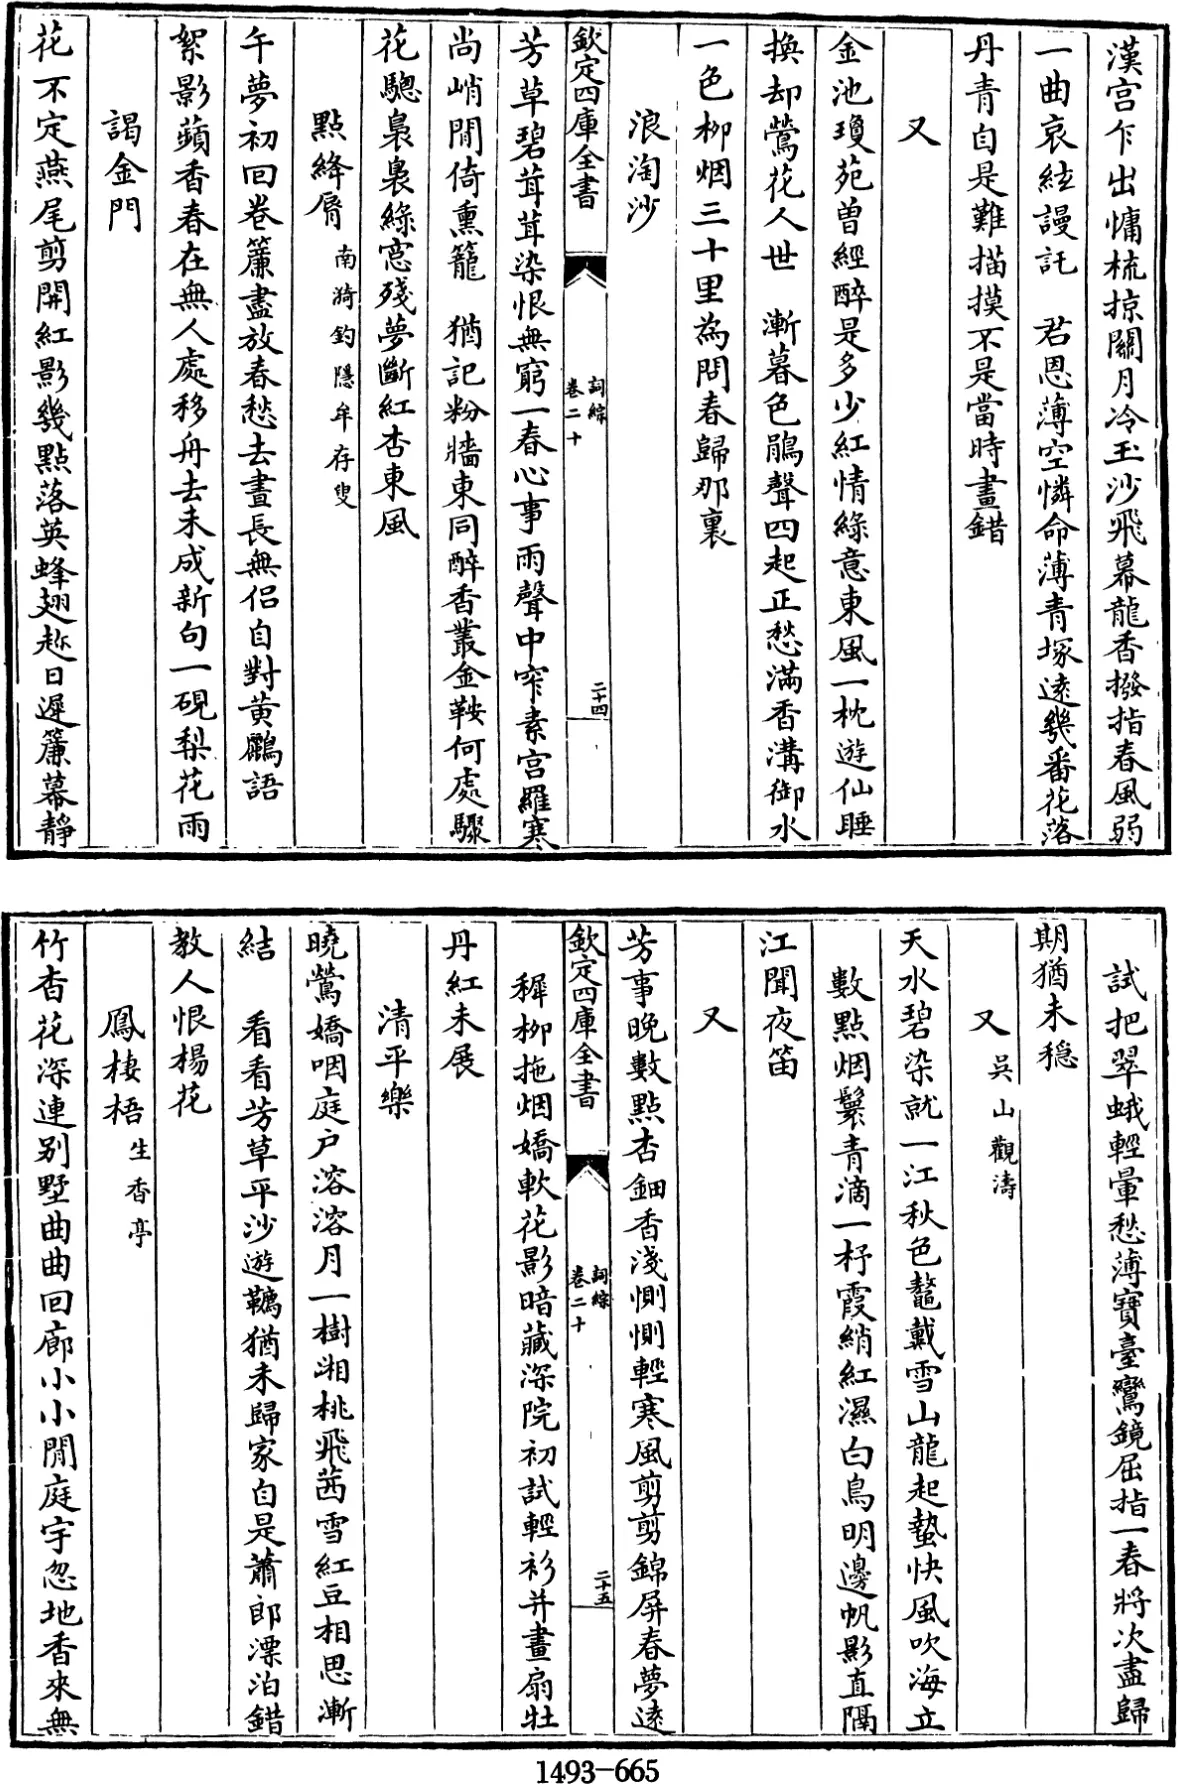 漢宮乍出慵梳掠關月冷玉沙飛幕龍香撥指春風弱
一曲哀絃謾託　君恩薄空憐命薄青塚遠幾番花落
丹青自是難描摸不是當時畫錯
又
金池瓊苑曽經醉是多少紅情綠意東風一枕遊仙睡
換却鶯花人世　漸暮色鵑聲四起正愁滿香溝御水
一色栁烟三十里為問春歸那裏
浪淘沙
欽定四庫全書
詞綜
卷二十
二十四
芳草碧茸茸染恨無窮一春心事雨聲中窄素宫羅寒
尚峭閒倚熏籠　猶記粉牆東同醉香叢金鞍何處驟
花驄裊裊綠窓殘夢斷紅杏東風
點絳脣 南漪釣隱牟存叟
午夢初回卷簾盡放春愁去晝長無侣自對黄鸝語
絮影蘋香春在無人處移舟去未成新句一硯梨花雨
謁金門
花不定燕尾剪開紅影幾點落英蜂翅趂日遲簾幕靜
試把翠蛾輕暈愁薄寶臺鸞鏡屈指一春將次盡歸
期猶未穏
又 吳山觀濤
天水碧染就一江秋色鼇戴雪山龍起蟄快風吹海立
數點烟鬟青滴一杼霞綃紅濕白鳥明邊帆影直隔
江聞夜笛
又
芳事晚數點杏鈿香淺惻惻輕寒風剪剪錦屏春夢遠
穉栁拖烟嬌軟花影暗藏深院初試輕衫并畫扇牡
丹紅未展
欽定四庫全書
詞綜
卷二十
二十五
清平樂
曉鶯嬌咽庭户溶溶月一樹湘桃飛茜雪紅豆相思漸
結　看看芳草平沙遊韉猶未歸家自是蕭郎漂泊錯
教人恨楊花
鳳棲梧 生香亭
竹杳花深連别墅曲曲回廊小小閒庭宇忽地香來無
1493-665